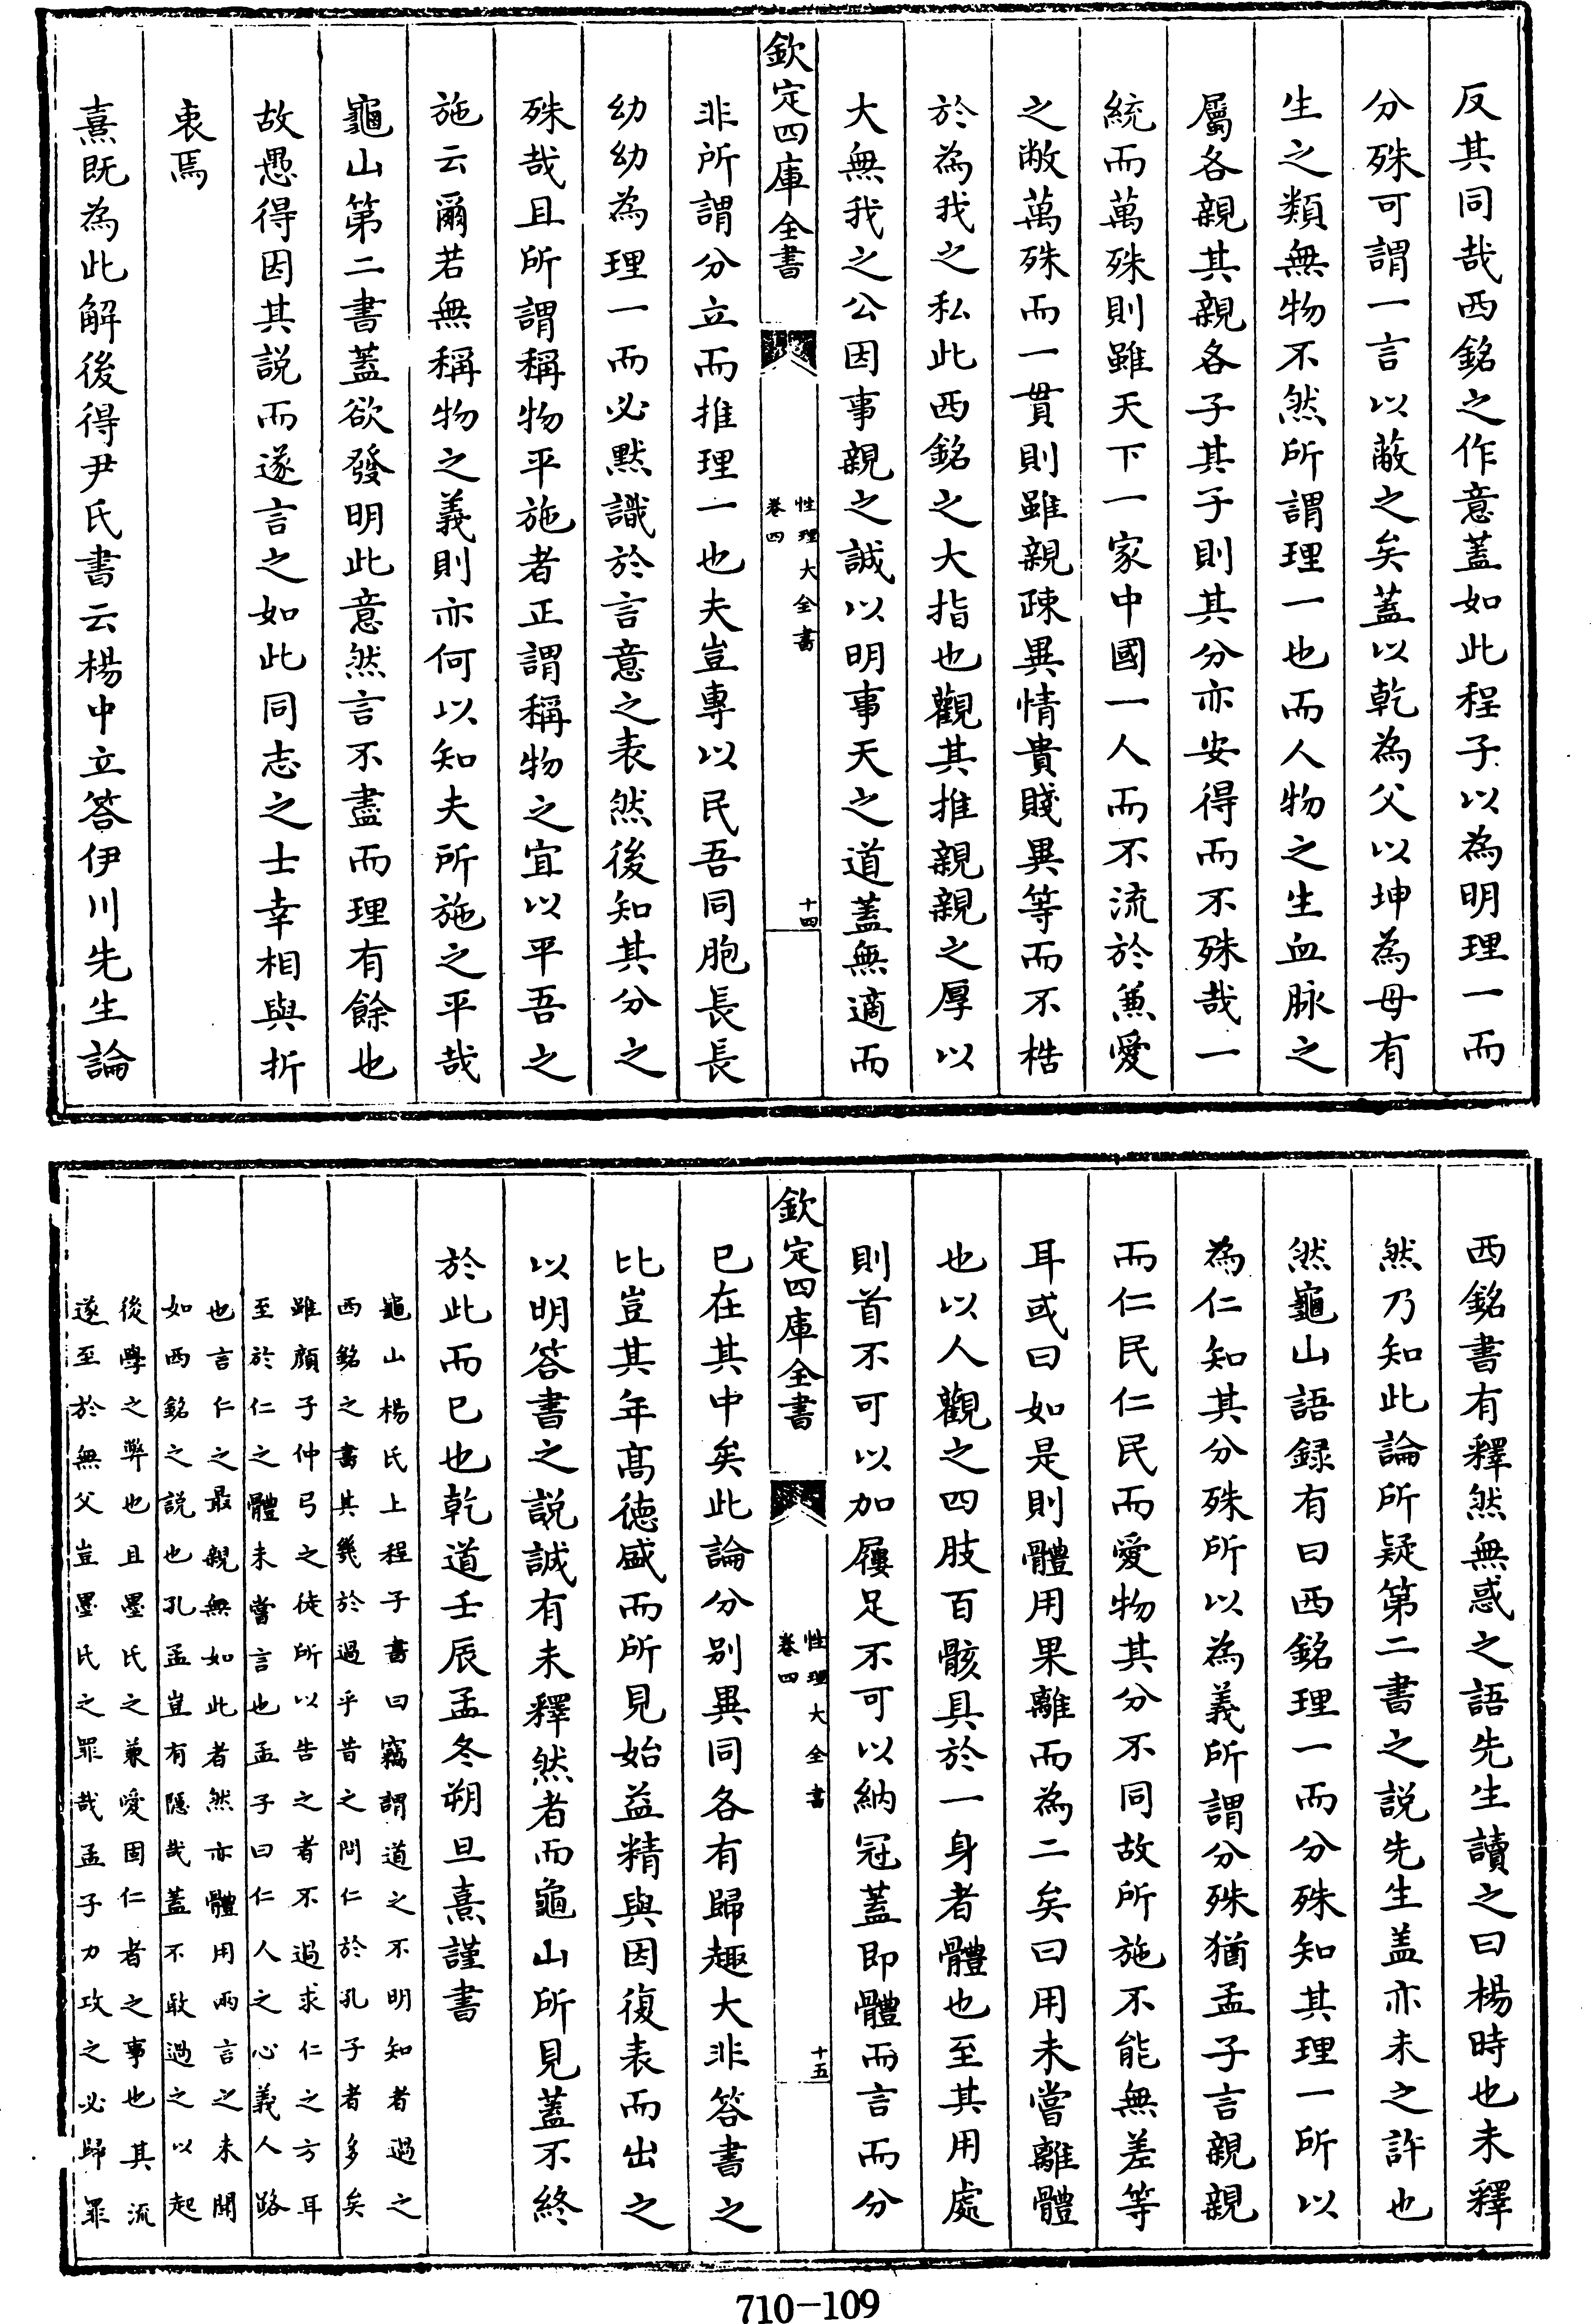 反其同哉西銘之作意蓋如此程子以為明理一而
分殊可謂一言以蔽之矣蓋以乾為父以坤為母有
生之類無物不然所謂理一也而人物之生血脉之
屬各親其親各子其子則其分亦安得而不殊哉一
統而萬殊則雖天下一家中國一人而不流於兼愛
之敝萬殊而一貫則雖親疎異情貴賤異等而不梏
於為我之私此西銘之大指也觀其推親親之厚以
大無我之公因事親之誠以明事天之道蓋無適而
欽定四庫全書
性理大全書
卷四
十四
非所謂分立而推理一也夫豈專以民吾同胞長長
幼幼為理一而必默識於言意之表然後知其分之
殊哉且所謂稱物平施者正謂稱物之宜以平吾之
施云爾若無稱物之義則亦何以知夫所施之平哉
龜山第二書蓋欲發明此意然言不盡而理有餘也
故愚得因其説而遂言之如此同志之士幸相與折
衷焉
熹既為此解後得尹氏書云楊中立答伊川先生論
西銘書有釋然無惑之語先生讀之曰楊時也未釋
然乃知此論所疑第二書之説先生盖亦未之許也
然龜山語録有曰西銘理一而分殊知其理一所以
為仁知其分殊所以為義所謂分殊猶孟子言親親
而仁民仁民而愛物其分不同故所施不能無差等
耳或曰如是則體用果離而為二矣曰用未嘗離體
也以人觀之四肢百骸具於一身者體也至其用處
則首不可以加屨足不可以納冠蓋即體而言而分
欽定四庫全書
性理大全書
卷四
十五
已在其中矣此論分别異同各有歸趣大非答書之
比豈其年髙德盛而所見始益精與因復表而出之
以明答書之説誠有未釋然者而龜山所見蓋不終
於此而已也乾道壬辰孟冬朔旦熹謹書
龜山楊氏上程子書曰竊謂道之不明知者過之
西銘之書其幾於過乎昔之問仁於孔子者多矣
雖顔子仲弓之徒所以告之者不過求仁之方耳
至於仁之體未嘗言也孟子曰仁人之心義人路
也言仁之最親無如此者然亦體用兩言之未聞
如西銘之説也孔孟豈有隱哉蓋不敢過之以起
後學之弊也且墨氏之兼愛固仁者之事也其流
遂至於無父豈墨氏之罪哉孟子力攻之必歸罪
710-109